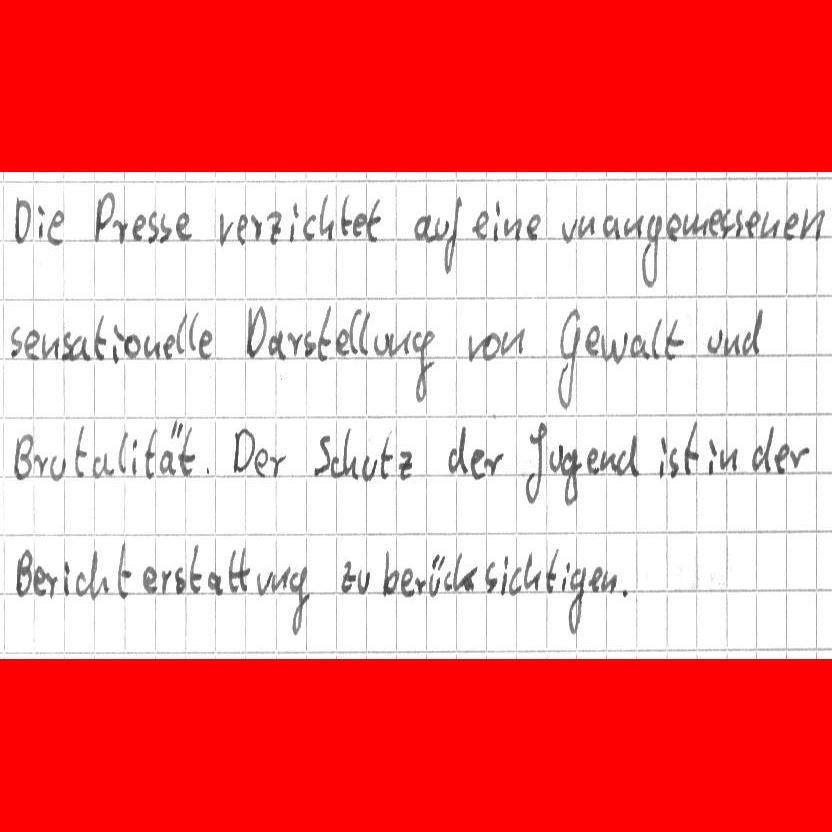 Die Presse verzichtet auf eine unangemessenen
sensationelle Darstellung von Gewalt und
Brutalität. Der Schutz der Jugend ist in der
Berichterstattung zu berücksichtigen.